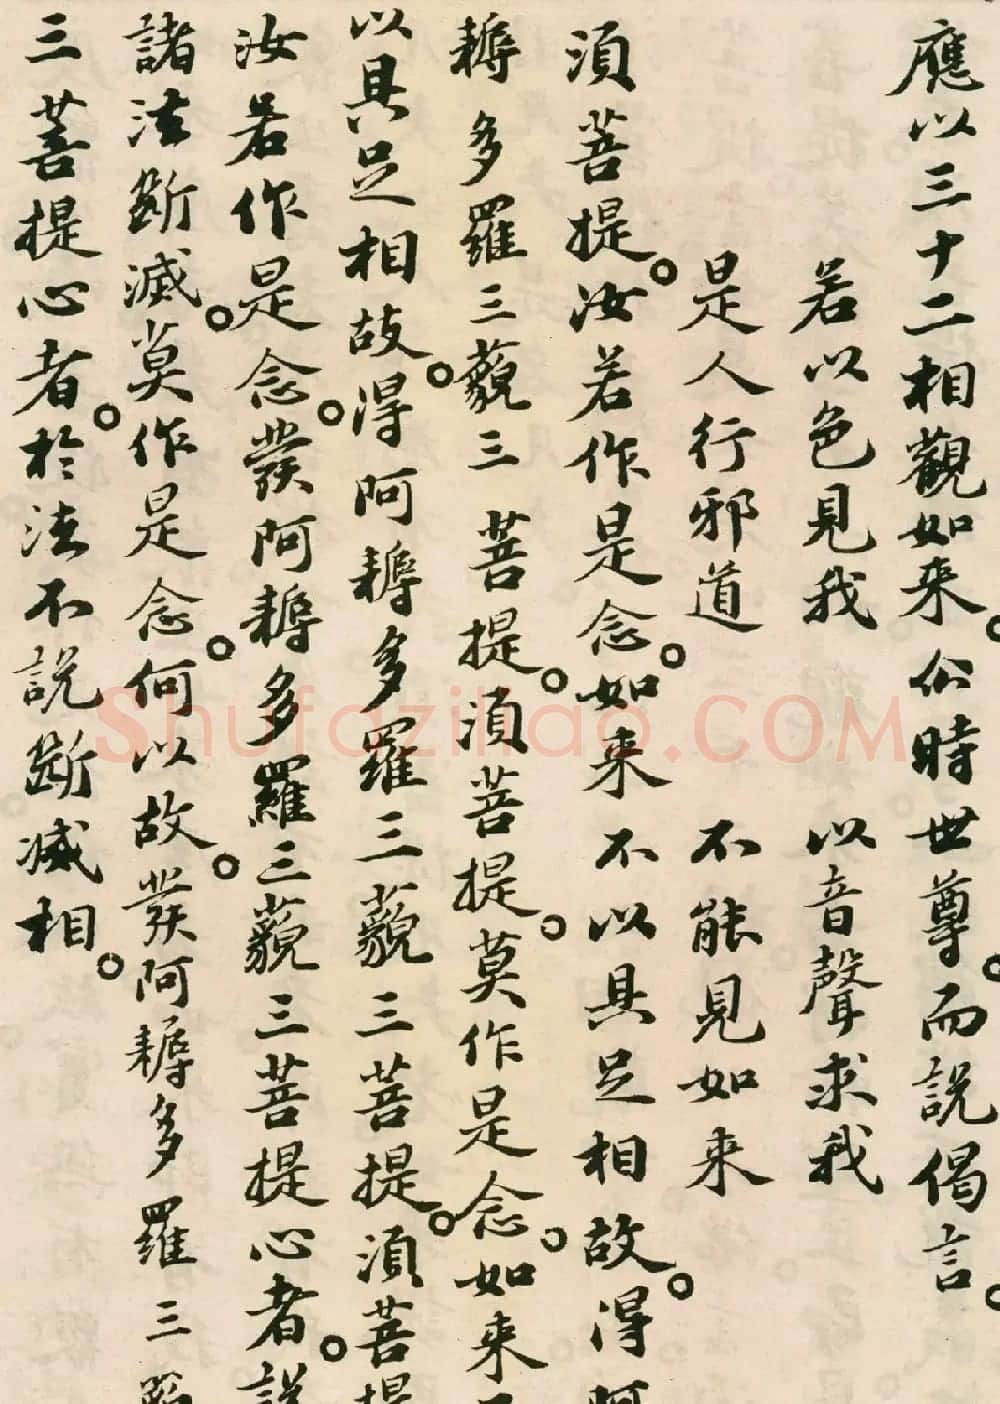 應以三十二相觀如来。尒時世尊。而説偈言。
若以色見我　以音聲求我
是人行邪道　不能見如来
須菩提。汝若作是念。如来不以具足相故。得阿
耨多羅三藐三菩提。須菩提。莫作是念。如来
以具足相故。得阿耨多羅三藐三菩提。須菩提
汝若作是念。發阿耨多羅三藐三菩提心者。説
諸法斷滅。莫作是念。何以故。發阿耨多羅三藐
三菩提心者。於法不説斷滅相。
Shufaziliao.COM